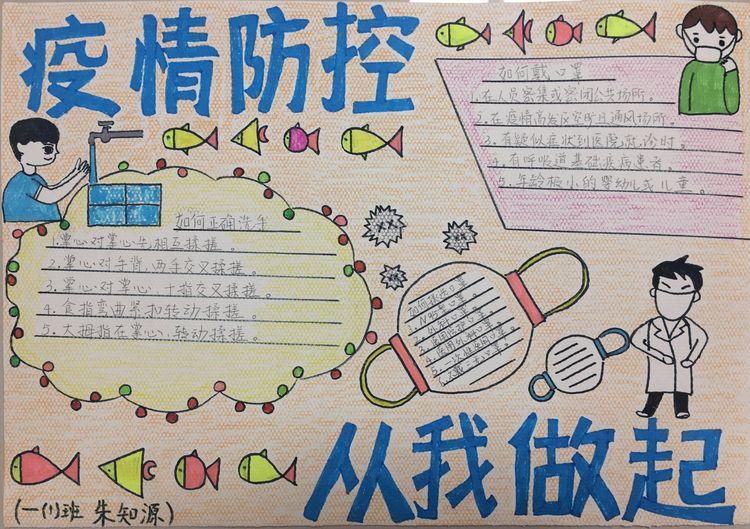 疫情防控
如何戴口罩
1.在人员密集或密闭公共场所。
2.在疫情高发区空旷且通风场所。
3.有疑似症状到医院就诊时。
4.有呼吸道基础疾病患者。
5.年龄极小的婴幼儿或儿童。
如何正确洗手
1.掌心对掌心先相互揉搓。
2.掌心对手背,两手交叉揉搓。
3.掌心对掌心,十指交叉揉搓。
4.食指弯曲紧扣转动揉搓。
5.大拇指在掌心,转动揉搓。
1.N95口罩。
从我做起
(一(1)班 朱知源)